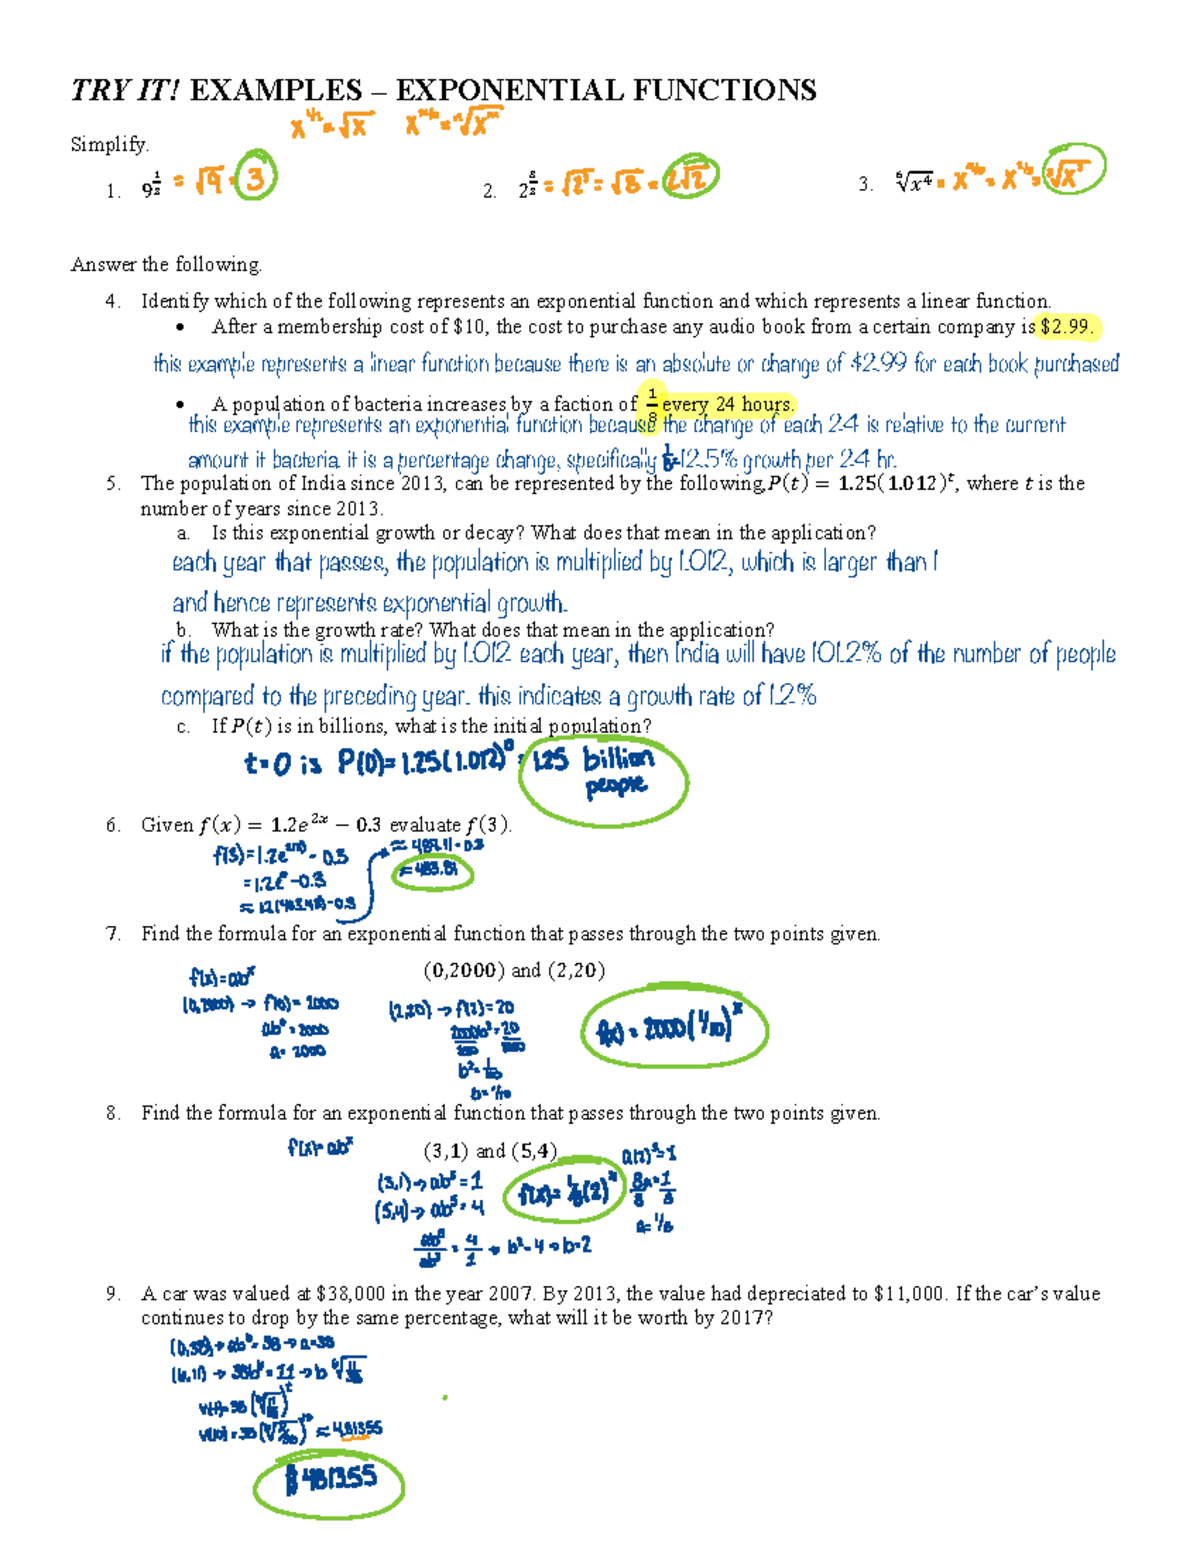 TRY IT! EXAMPLES – EXPONENTIAL FUNCTIONS
x^{1/2} = √x x^{m/n} = ⁿ√x^m
Simplify.
1. 9^{1/2} = √9 = 3 2. 2^{3/2} = √2³ = √8 = 2√2 3. ⁶√x⁴ = x^{4/6} = x^{2/3} = ³√x²
Answer the following.
4. Identify which of the following represents an exponential function and which represents a linear function.
• After a membership cost of $10, the cost to purchase any audio book from a certain company is $2.99.
this example represents a linear function because there is an absolute or change of $2.99 for each book purchased
• A population of bacteria increases by a faction of 1/8 every 24 hours.
this example represents an exponential function because the change of each 24 is relative to the current
amount it bacteria. it is a percentage change, specifically 1/8=12.5% growth per 24 hr.
5. The population of India since 2013, can be represented by the following, P(t) = 1.25(1.012)^t, where t is the
number of years since 2013.
a. Is this exponential growth or decay? What does that mean in the application?
each year that passes, the population is multiplied by 1.012, which is larger than 1
and hence represents exponential growth.
b. What is the growth rate? What does that mean in the application?
if the population is multiplied by 1.012 each year, then India will have 101.2% of the number of people
compared to the preceding year. this indicates a growth rate of 1.2%
c. If P(t) is in billions, what is the initial population?
t=0 is P(0)=1.25(1.012)^0 = 1.25 billion
people
6. Given f(x) = 1.2e^{2x} − 0.3 evaluate f(3).
f(3)=1.2e^{2(3)} - 0.3
=1.2e^6 -0.3
≈ 1.2(403.43)-0.3
≈ 484.11 - 0.3
≈ 483.81
7. Find the formula for an exponential function that passes through the two points given.
(0,2000) and (2,20)
f(x)=ab^x
(0,2000) → f(0)= 2000
ab^0 = 2000
a= 2000
(2,20) → f(2)= 20
b²=
b= 1/10
f(x) = 2000(1/10)^x
8. Find the formula for an exponential function that passes through the two points given.
f(x)= ab^x
(3,1) and (5,4)
(3,1)→ ab³ = 1
(5,4)→ ab⁵ = 4
= 4/1 → b²=4 → b=2
f(x)= 1/8(2)^x
a(2)³=1
8a/8 = 1/8
a= 1/8
9. A car was valued at $38,000 in the year 2007. By 2013, the value had depreciated to $11,000. If the car's value
continues to drop by the same percentage, what will it be worth by 2017?
(0,38)→ ab^0 = 38 → a=38
(6,11) → 38b^6 = 11 → b
≈ 4.81355
$ 4813.55